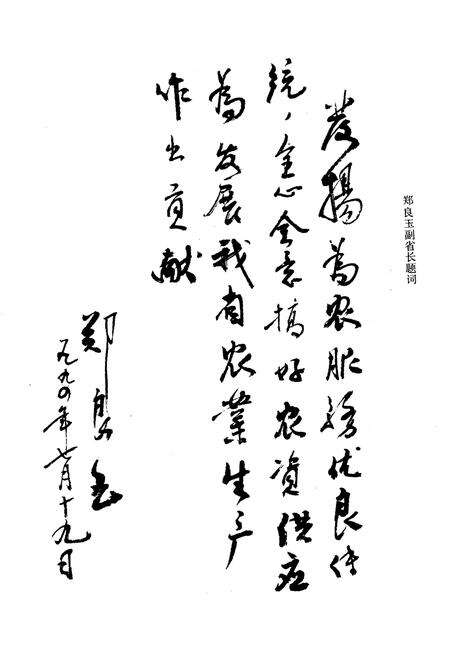 郑良玉副省长题词
发扬为农服务优良传
统，全心全意搞好农资供应
为发展我省农业生产
作出贡献
郑良玉
一九九〇年七月十九日